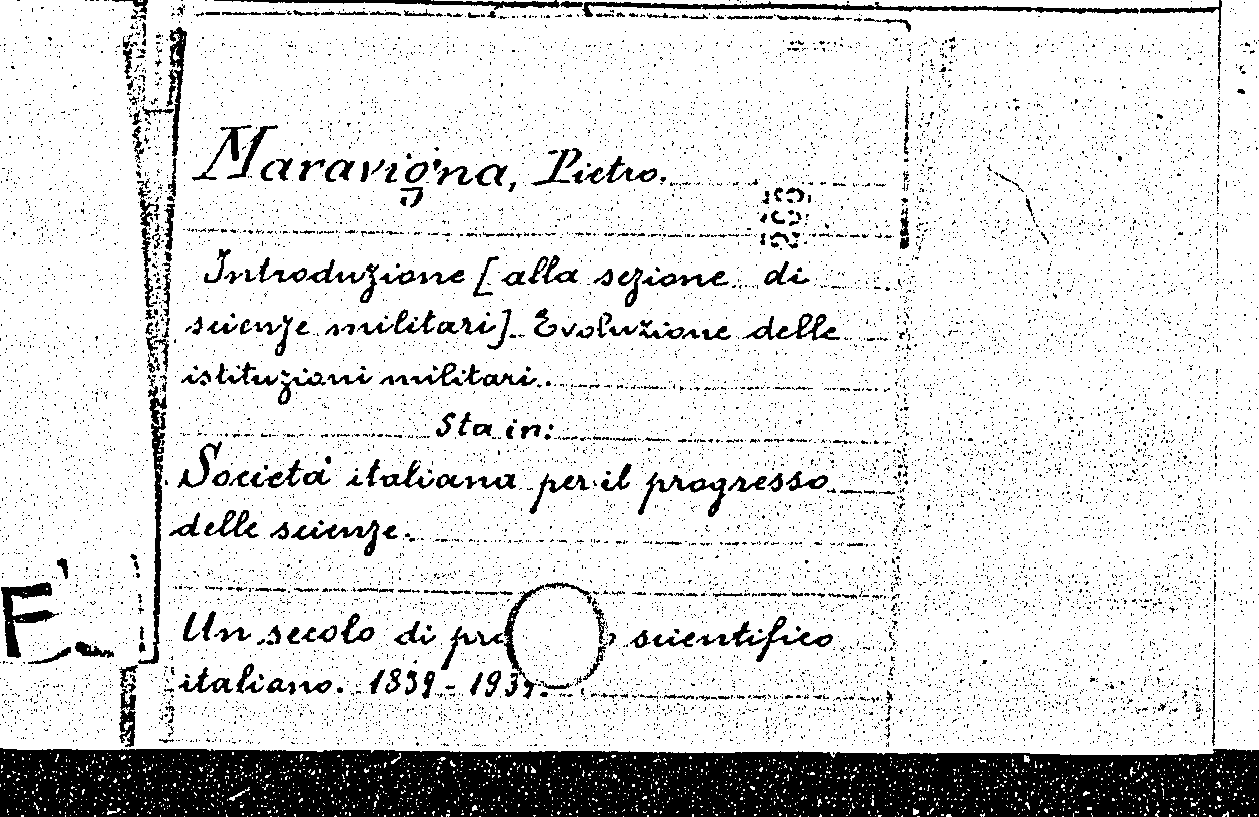 Maravigna, Pietro.
Introduzione [alla sezione di
scienze militari]. Evoluzione delle
istituzioni militari.
Sta in:
Società italiana per il progresso
delle scienze.
Un secolo di scientifico
italiano. 1839-1939.